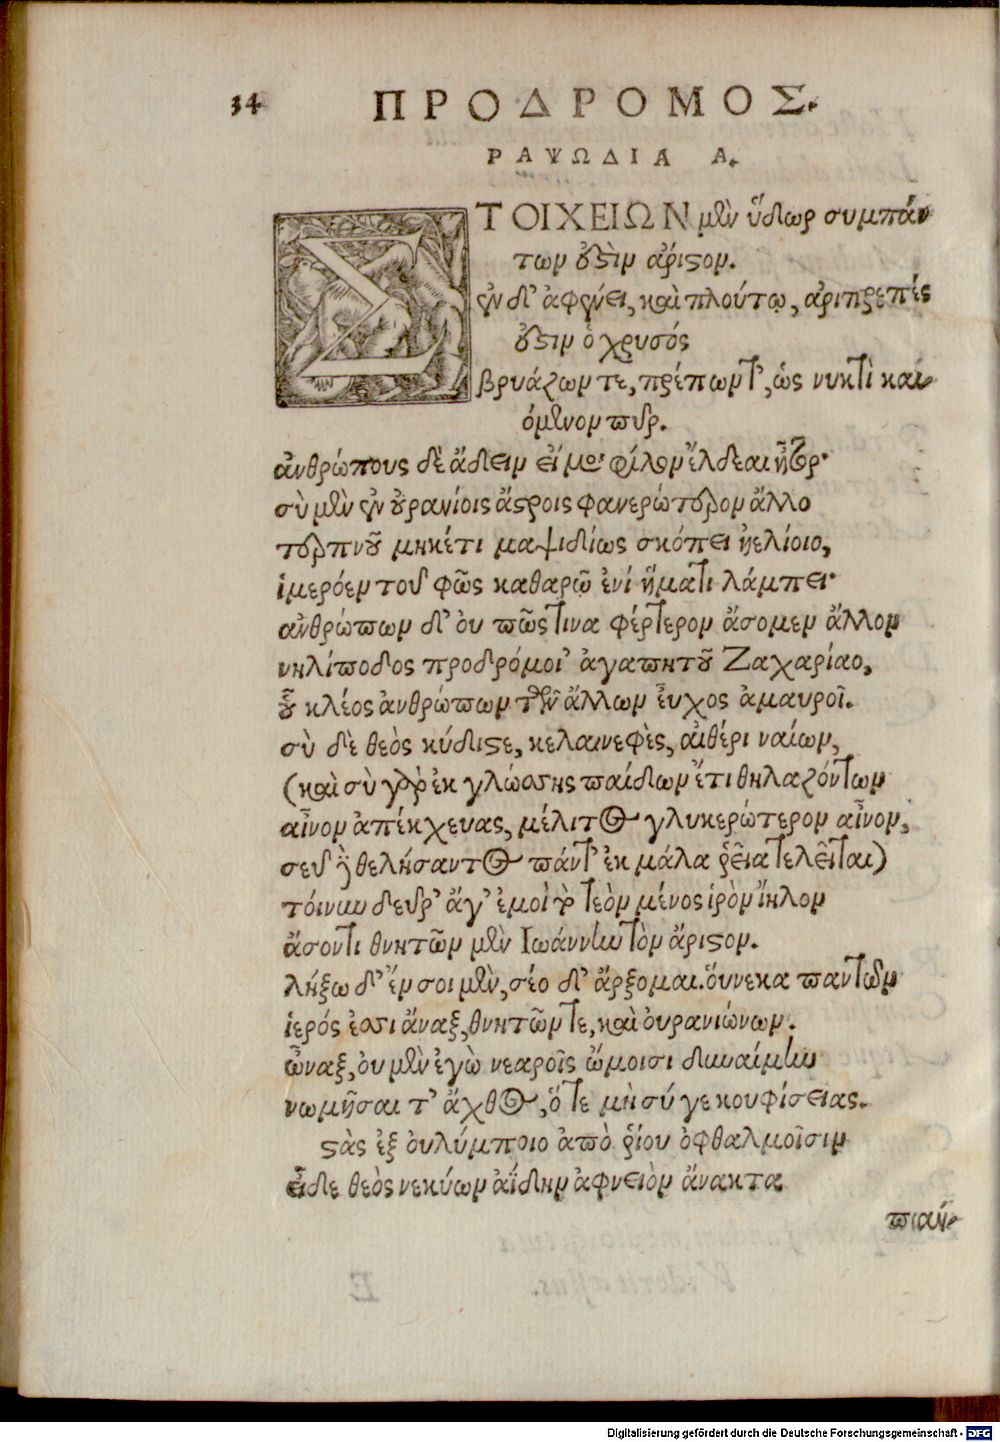 34 ΠΡΟΔΡΟΜΟΣ.
ΡΑΨΩΔΙΑ Α.
ΣΤΟΙΧΕΙΩΝ μὲν ὕδωρ συμπάν
των ὅστὶν ἄριστον.
ἐν δ' ἀφνύει, καὶ πλούτῳ, ἀριπρεπές
ὅστιν ὁ χρυσός
βρυάζων τε, πρέπων τ', ὡς νυκτὶ και
όμενον πυρ.
ἀνθρώπους δὲ ἄδειν εἴ μοι φίλον ἔλδεαι ἦτορ·
σὺ μὲν ἐν οὐρανίοις ἄστροις φανερώτερον ἄλλο
τερπνοῦ μηκέτι μαψιδίως σκόπει ἠελίοιο,
ἱμερόεν τοῦ φῶς καθαρῷ ἐνί ἤματι λάμπει·
ἀνθρώπων δ' ὀυ πῶς τινα φέρτερον ἄσομεν ἄλλον
νηλίποδος προδρόμοι' ἀγαπητοῦ Ζαχαρίαο,
οὗ κλέος ἀνθρώπων τῶν ἄλλων ἔυχος ἀμαυροῖ.
σὺ δὲ θεὸς κύδιστε, κελαινεφὲς, αἰθέρι ναίων,
(καὶ σὺ γὰρ ἐκ γλώσσης παίδων ἔτι θηλαζόντων
αἶνον ἀπέκχευας, μέλιτος γλυκερώτερον αἶνον,
σεῦ ἢ θελήσαντος πάντ' ἐκ μάλα ῥεῖα τελεῖται)
τόινυν δεῦρ' ἄγ' ἐμοὶ παρ τεὸν μένος ἱρὸν ἴηλον
ἄσοντι θνητῶν μὲν Ιωάννην τὸν ἄριστον.
λήξω δ' ἔν σοι μὲν, σέο δ' ἄρξομαι. ὅυνεκα παντῶν
ἱερός ἐσσι ἄναξ, θνητῶν τε, καὶ ὀυρανιώνων.
ὦναξ, ὀυ μὲν ἐγὼ νεαροῖς ὤμοισι δυναίμην
νωμῆσαι τ' ἄχθος, ὅτε μὴ σύ γε κουφίσειας.
στὰς ἐξ ὀυλύμποιο ἀπὸ ῥίου ὀφθαλμοῖσιν
εἶδε θεὸς νεκύων ἀΐδην ἀφνειὸν ἄνακτα
πιαν́
Digitalisierung gefördert durch die Deutsche Forschungsgemeinschaft - DFG